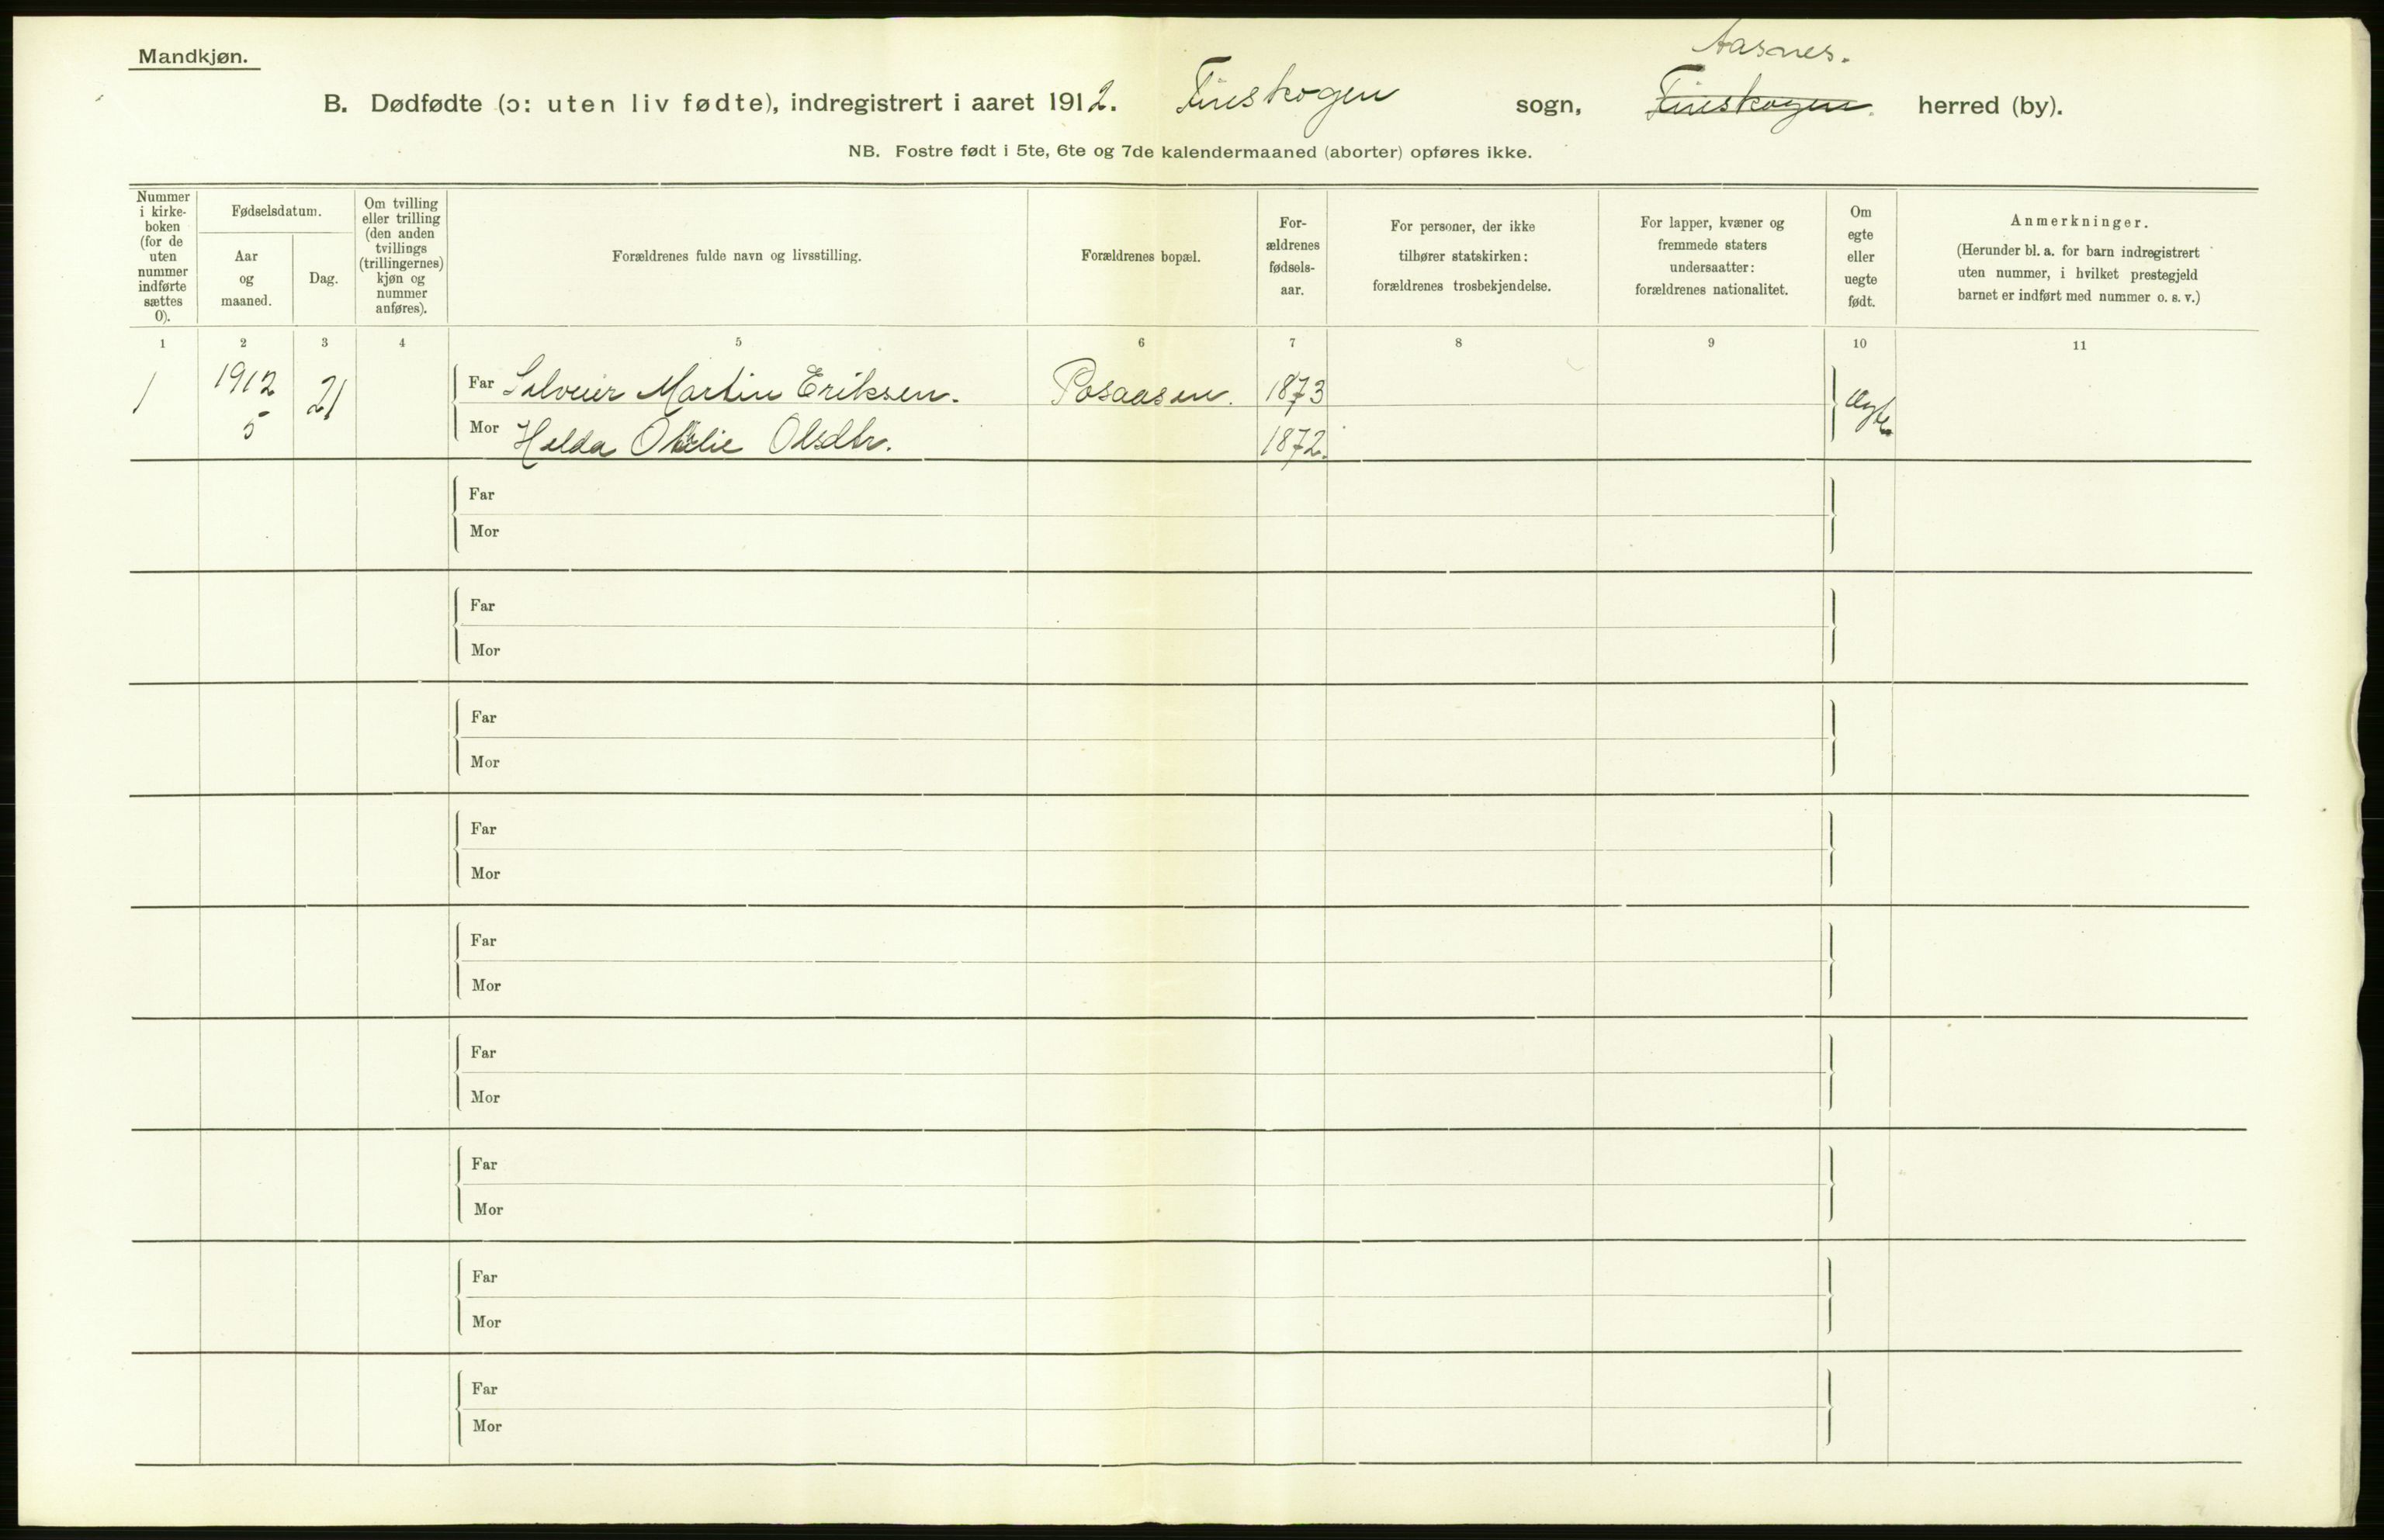 Mandkjøn.
Aasnes.
B. Dødfødte (ɔ: uten liv fødte), indregistrert i aaret 1912. Finskogen sogn, Finskogen. herred (by).
NB. Fostre født i 5te, 6te og 7de kalendermaaned (aborter) opføres ikke.
Nummer
i kirke-
boken
(for de
uten
nummer
indførte
sættes
0).
Fødselsdatum.
Aar
og
maaned.
Dag.
Om tvilling
eller trilling
(den anden
tvillings
(trillingernes)
kjøn og
nummer
anføres).
Forældrenes fulde navn og livsstilling.
Forældrenes bopæl.
For-
ældrenes
fødsels-
aar.
For personer, der ikke
tilhører statskirken:
forældrenes trosbekjendelse.
For lapper, kvæner og
fremmede staters
undersaatter:
forældrenes nationalitet.
Om
egte
eller
uegte
født.
Anmerkninger.
(Herunder bl. a. for barn indregistrert
uten nummer, i hvilket prestegjeld
barnet er indført med nummer o. s. v.)
1 2 3 4 5 6 7 8 9 10 11
1 1912 21 Far Martin Eriksen. Posaasen. 1873 Ægte
5 Mor Olsdtr. 1872.
Far
Mor
Far
Mor
Far
Mor
Far
Mor
Far
Mor
Far
Mor
Far
Mor
Far
Mor
Far
Mor